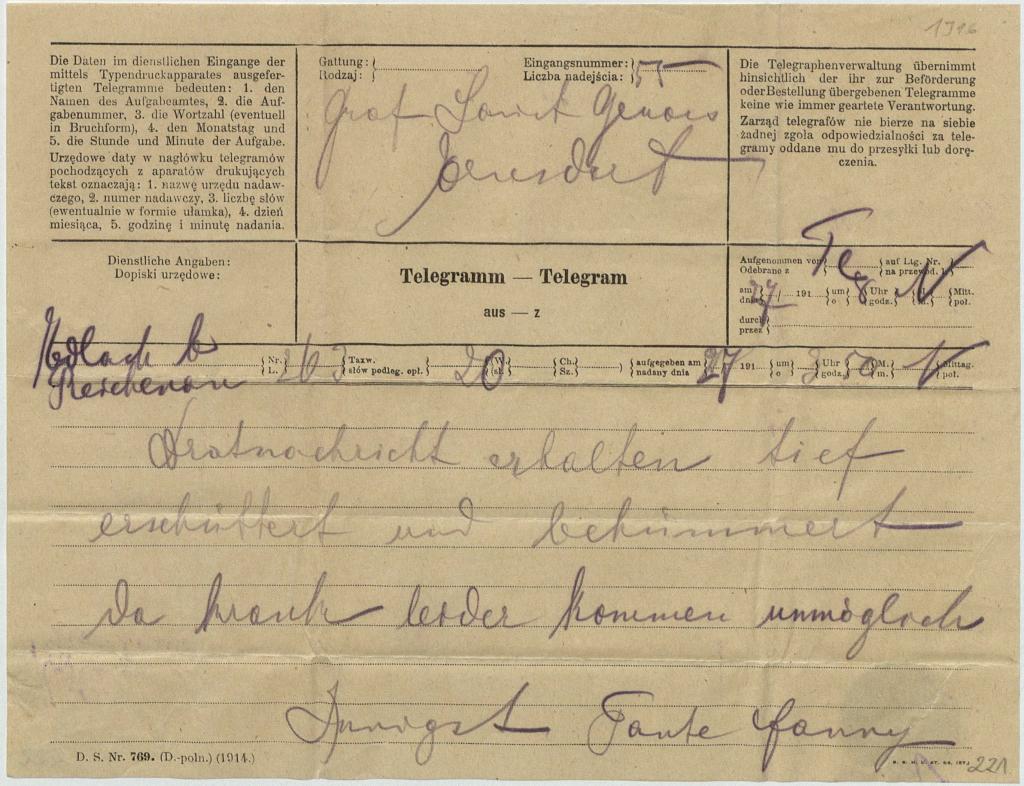 1916
Die Daten im dienstlichen Eingange der
mittels Typendruckapparates ausgefer-
tigten Telegramme bedeuten: 1. den
Namen des Aufgabeamtes, 2. die Auf-
gabenummer, 3. die Wortzahl (eventuell
in Bruchform), 4. den Monatstag und
5. die Stunde und Minute der Aufgabe.
Urzędowe daty w nagłówku telegramów
pochodzących z aparatów drukujących
tekst oznaczają: 1. nazwę urzędu nadaw-
czego, 2. numer nadawczy, 3. liczbę słów
(ewentualnie w formie ułamka), 4. dzień
miesiąca, 5. godzinę i minutę nadania.
Gattung:
Rodzaj:
Eingangsnummer: 55
Liczba nadejścia:
Graf Saint Genois
Die Telegraphenverwaltung übernimmt
hinsichtlich der ihr zur Beförderung
oder Bestellung übergebenen Telegramme
keine wie immer geartete Verantwortung.
Zarząd telegrafów nie bierze na siebie
żadnej zgoła odpowiedzialności za tele-
gramy oddane mu do przesyłki lub dorę-
czenia.
Dienstliche Angaben:
Dopiski urzędowe:
Telegramm — Telegram
aus — z
Aufgenommen von
Odebrano z
auf Ltg. Nr.
na przewód. l.
am 27/ 191 um 8 Uhr M. N Mitt.
dnia o godz. m. poł.
durch
przez
Edlach b
Reichenau
Nr. 263 Taxw. 20 W. Ch. aufgegeben am 27 191 um 3 Uhr 50 M. N Mittag.
L. słów podleg. opł. sł. Sz. nadany dnia o godz. m. poł.
Dratnachricht erhalten tief
erschüttert und bekümmert
da krank leider kommen unmöglich
Innigst Tante Fanny
D. S. Nr. 769. (D.-poln.) (1914.)
221